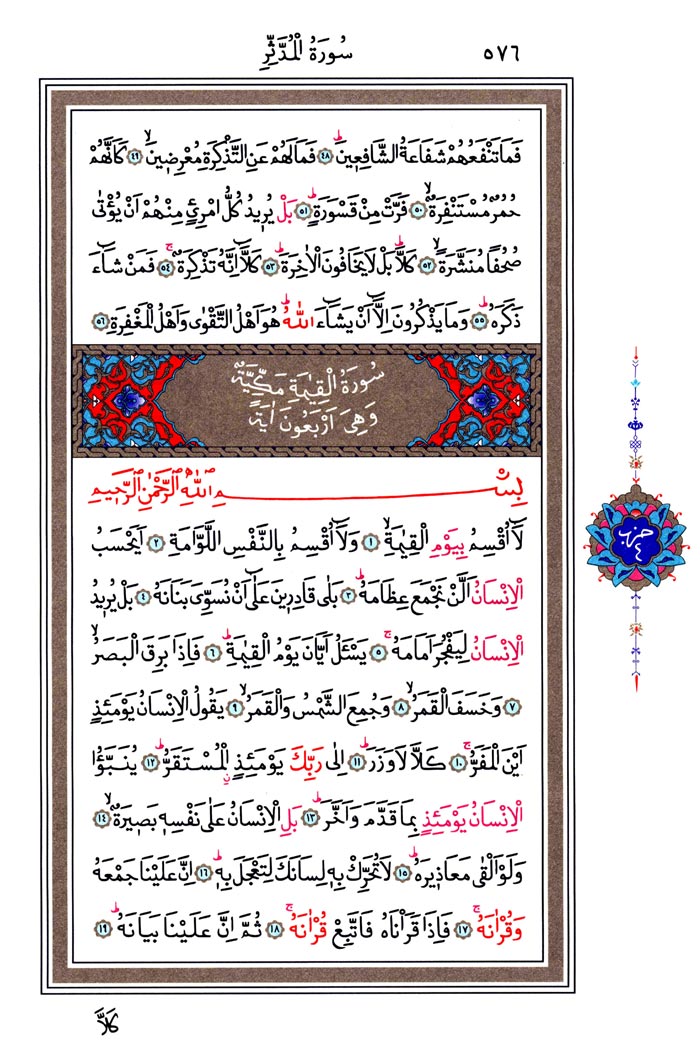 سُورَةُ الْمُدَّثِّرِ ٥٧٦
فَمَا تَنْفَعُهُمْ شَفَاعَةُ الشَّافِعِينَۜ ٤٨ فَمَا لَهُمْ عَنِ التَّذْكِرَةِ مُعْرِضِينَۙ ٤٩ كَاَنَّهُمْ
حُمُرٌ مُسْتَنْفِرَةٌۙ ٥٠ فَرَّتْ مِنْ قَسْوَرَةٍۜ ٥١ بَلْ يُرِيدُ كُلُّ امْرِئٍ مِنْهُمْ اَنْ يُؤْتٰى
صُحُفًا مُنَشَّرَةًۙ ٥٢ كَلَّاۜ بَلْ لَا يَخَافُونَ الْاٰخِرَةَۜ ٥٣ كَلَّٓا اِنَّهُ تَذْكِرَةٌۚ ٥٤ فَمَنْ شَٓاءَ
ذَكَرَهُۜ ٥٥ وَمَا يَذْكُرُونَ اِلَّٓا اَنْ يَشَٓاءَ اللّٰهُۜ هُوَ اَهْلُ التَّقْوٰى وَاَهْلُ الْمَغْفِرَةِ ٥٦
سُورَةُ الْقِيٰمَةِ مَكِّيَّةٌ
وَهِيَ اَرْبَعُونَ اٰيَةً
بِسْمِ اللّٰهِ الرَّحْمٰنِ الرَّحِيمِ
لَٓا اُقْسِمُ بِيَوْمِ الْقِيٰمَةِۙ ١ وَلَٓا اُقْسِمُ بِالنَّفْسِ اللَّوَّامَةِ ٢ اَيَحْسَبُ
الْاِنْسَانُ اَلَّنْ نَجْمَعَ عِظَامَهُۜ ٣ بَلٰى قَادِرِينَ عَلٰٓى اَنْ نُسَوِّيَ بَنَانَهُ ٤ بَلْ يُرِيدُ
الْاِنْسَانُ لِيَفْجُرَ اَمَامَهُۚ ٥ يَسْـَٔلُ اَيَّانَ يَوْمُ الْقِيٰمَةِۜ ٦ فَاِذَا بَرِقَ الْبَصَرُۙ
٧ وَخَسَفَ الْقَمَرُۙ ٨ وَجُمِعَ الشَّمْسُ وَالْقَمَرُۙ ٩ يَقُولُ الْاِنْسَانُ يَوْمَئِذٍ
اَيْنَ الْمَفَرُّۚ ١٠ كَلَّا لَا وَزَرَۜ ١١ اِلٰى رَبِّكَ يَوْمَئِذٍ الْمُسْتَقَرُّۜ ١٢ يُنَبَّؤُا
الْاِنْسَانُ يَوْمَئِذٍ بِمَا قَدَّمَ وَاَخَّرَۜ ١٣ بَلِ الْاِنْسَانُ عَلٰى نَفْسِهِ بَصِيرَةٌۙ ١٤
وَلَوْ اَلْقٰى مَعَاذِيرَهُۜ ١٥ لَا تُحَرِّكْ بِهِ لِسَانَكَ لِتَعْجَلَ بِهِۜ ١٦ اِنَّ عَلَيْنَا جَمْعَهُ
وَقُرْاٰنَهُۚ ١٧ فَاِذَا قَرَاْنَاهُ فَاتَّبِعْ قُرْاٰنَهُۚ ١٨ ثُمَّ اِنَّ عَلَيْنَا بَيَانَهُۜ ١٩
كَلَّا
حزب
٤